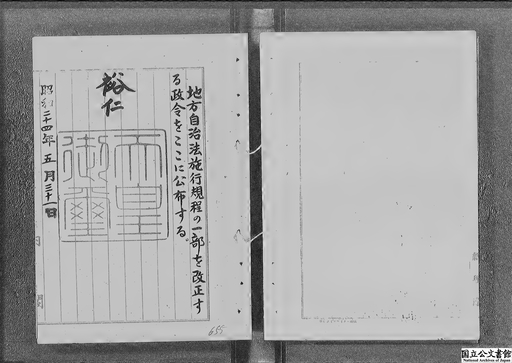 地方自治法施行規程の一部を改正す
る政令をここに公布する。
裕仁
天皇御璽
昭和二十四年五月三十一日
655
国立公文書館
National Archives of Japan